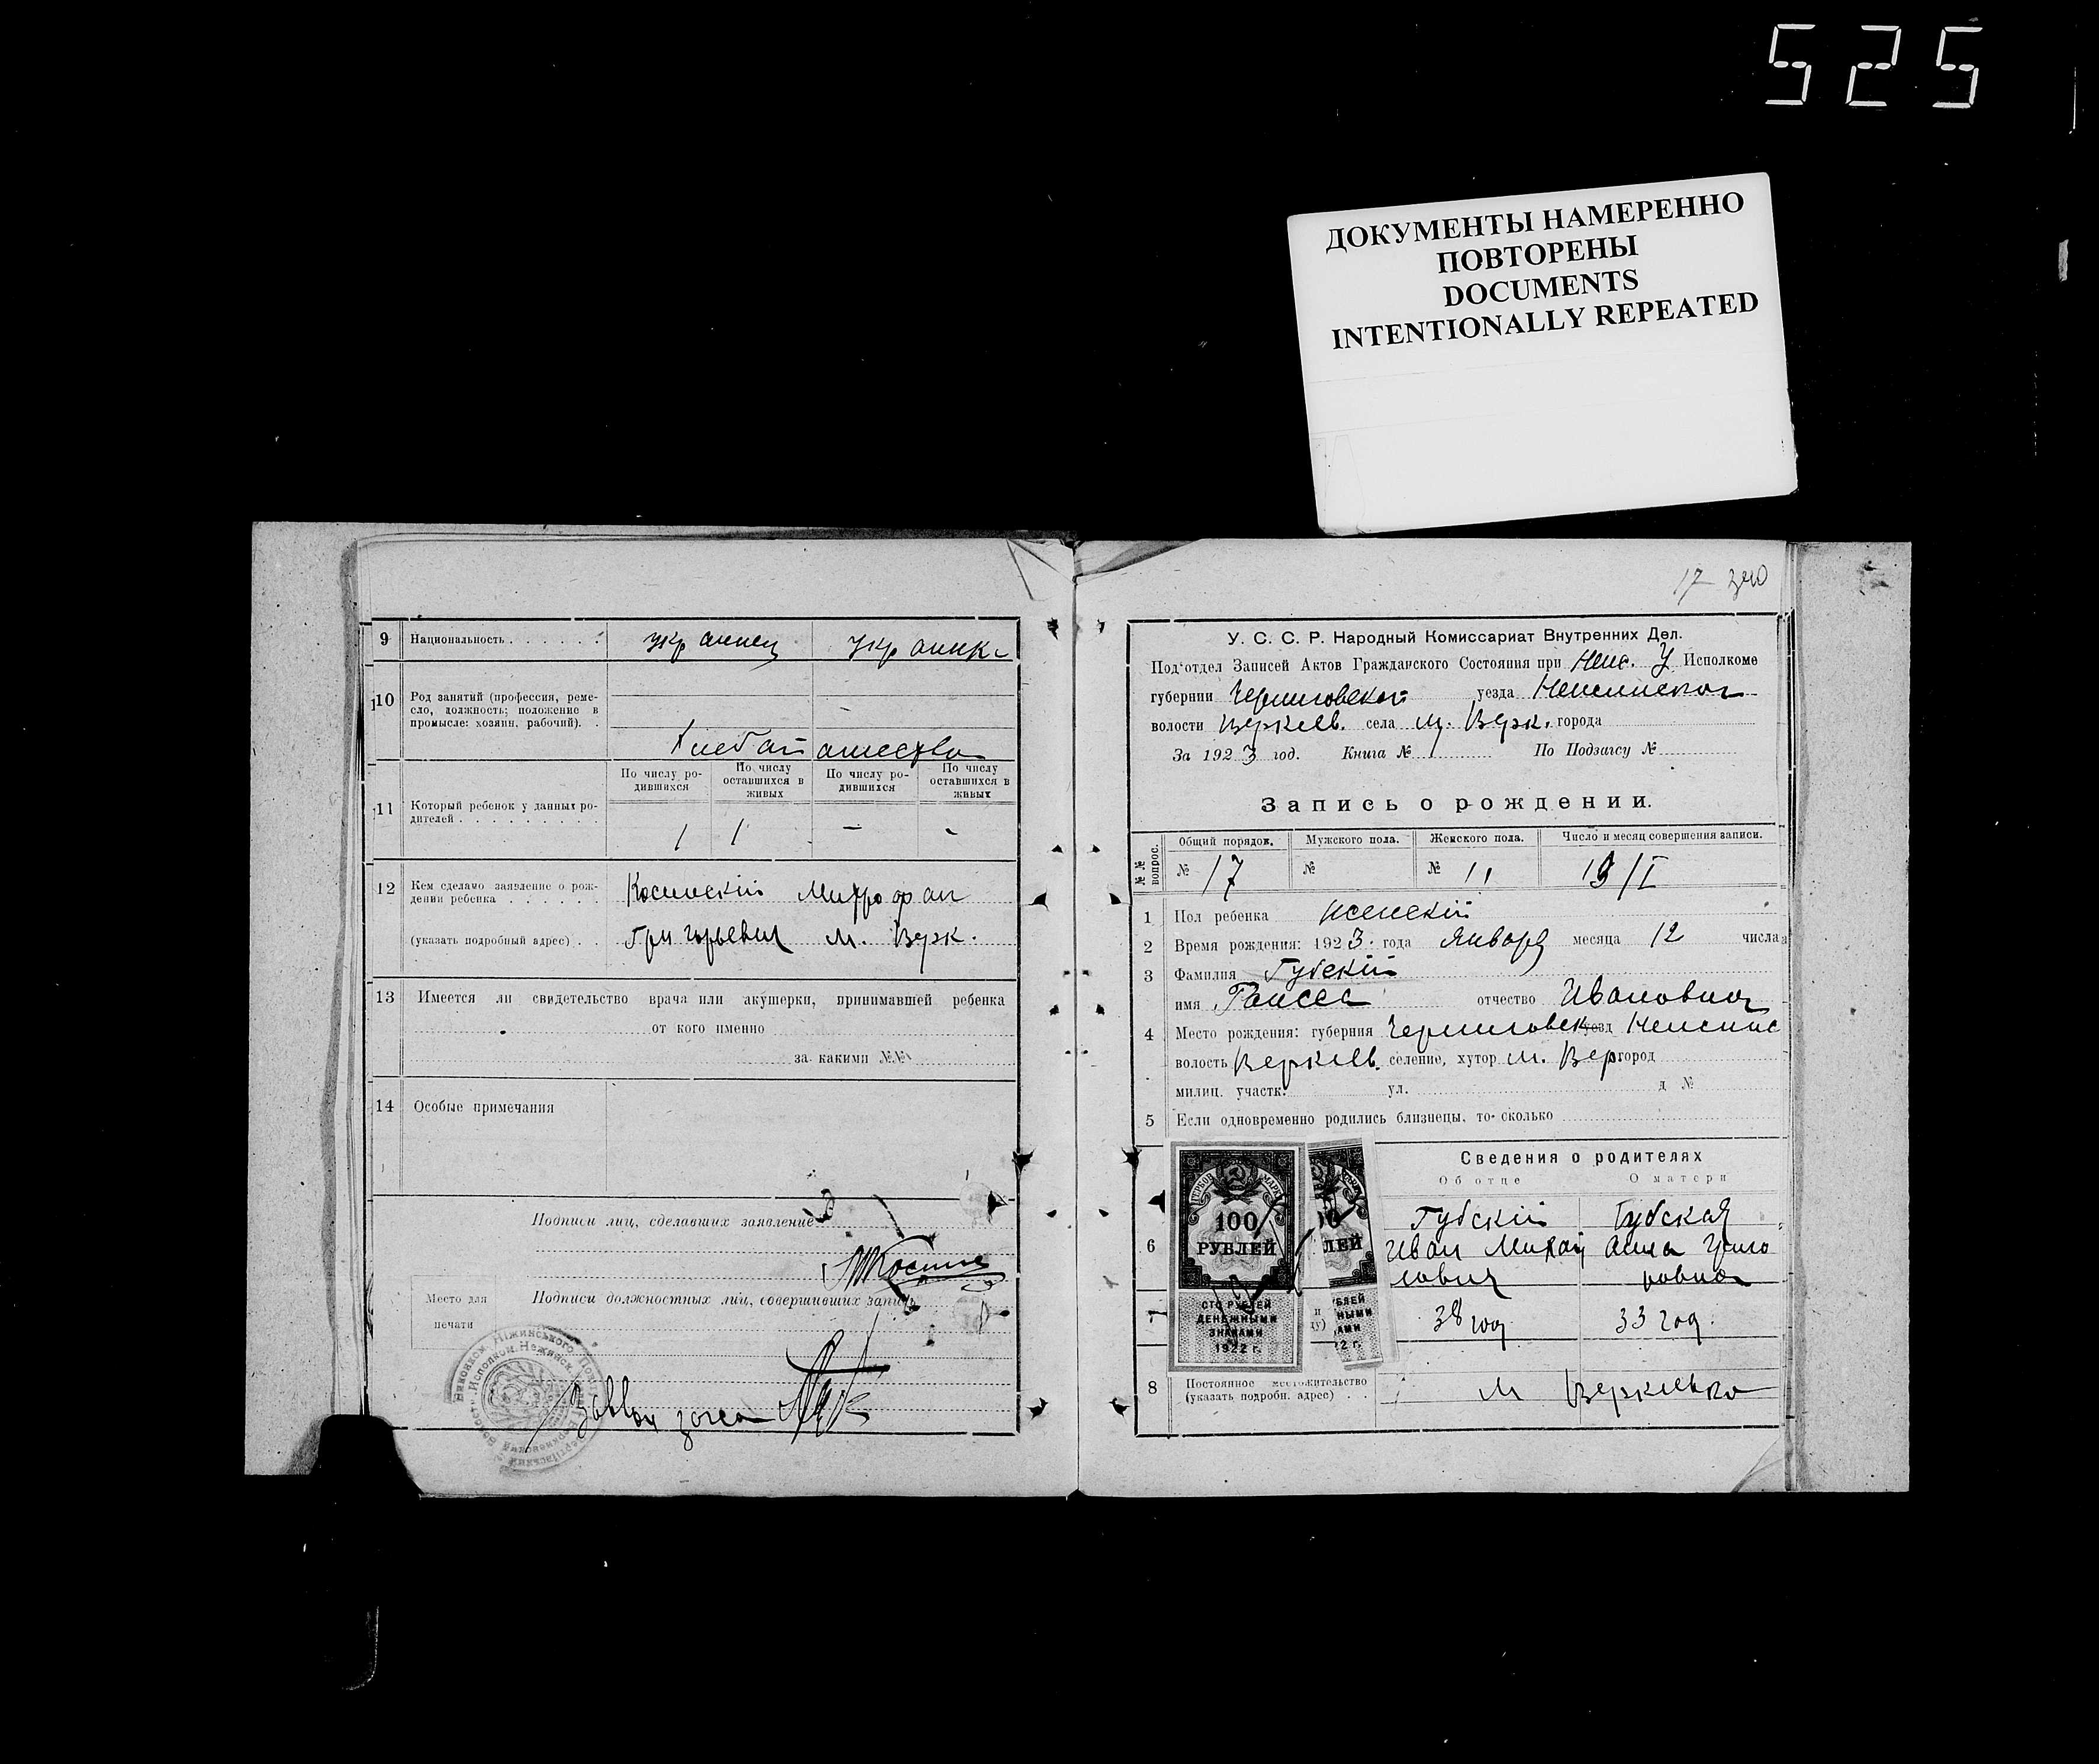 525
ДОКУМЕНТЫ НАМЕРЕННО
ПОВТОРЕНЫ
DOCUMENTS
INTENTIONALLY REPEATED
9 Национальность . . . . . . украинец украинка
10 Род занятий (профессия, реме-
сло, должность; положение в
промысле: хозяин, рабочий). .
Хлебопашество
По числу ро-
дившихся
По числу
оставшихся в
живых
По числу ро-
дившихся
По числу
оставшихся в
живых
11 Который ребенок у данных ро-
дителей . . . . . . . . .
1 1 — -
12 Кем сделано заявление о рож-
дении ребенка . . . . . . Косинский Митрофан
(указать подробный адрес) . . Григорьевич м. Верк.
13 Имеется ли свидетельство врача или акушерки, принимавшей ребенка
от кого именно
за какими №№
14 Особые примечания
Подписи лиц, сделавших заявление
Подписи должностных лиц, совершивших запись
Место для
печати
17
У. С. С. Р. Народный Комиссариат Внутренних Дел.
Под'отдел Записей Актов Гражданского Состояния при Неж. У Исполкоме
губернии Черниговской уезда Неженской
волости Веркиев. села м. Верк. города
За 1923 год. Книга № 1 По Подзагсу №
Запись о рождении.
№№ вопрос.
Общий порядок. Мужского пола. Женского пола. Число и месяц совершения записи.
№ 17 № № 11 19/I
1 Пол ребенка женский
2 Время рождения: 1923 года Января месяца 12 числа
3 Фамилия Губский
имя Раиса отчество Ивановна
4 Место рождения: губерния Черниговск уезд Неженс
волость Веркиев. селение, хутор м. Вер город
милиц. участк. ул. д №
5 Если одновременно родились близнецы, то сколько
Сведения о родителях
Об отце О матери
6 Губский Губская
Иван Михай Анна Григо
лович ровна
7 38 год 33 год.
8 Постоянное местожительство
(указать подробн. адрес) . . м Веркиевка
100
РУБЛЕЙ
СТО РУБЛЕЙ
ДЕНЕЖНЫМИ
ЗНАКАМИ
1922 г.